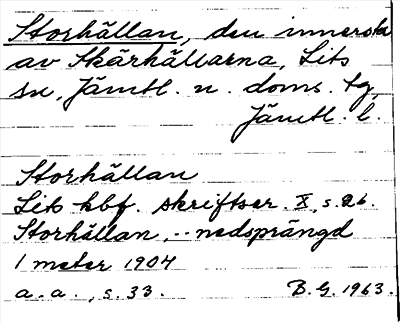 Storhällan, den innersta
av Skärhällarna, Lits
sn, Jämtl. n. doms. tg,
Jämtl. l.
Storhällan
Lits hbf. skriftser. X, s. 26.
Storhällan, -- nedsprängd
1 meter 1904
a. a., s. 33. B.G. 1963.